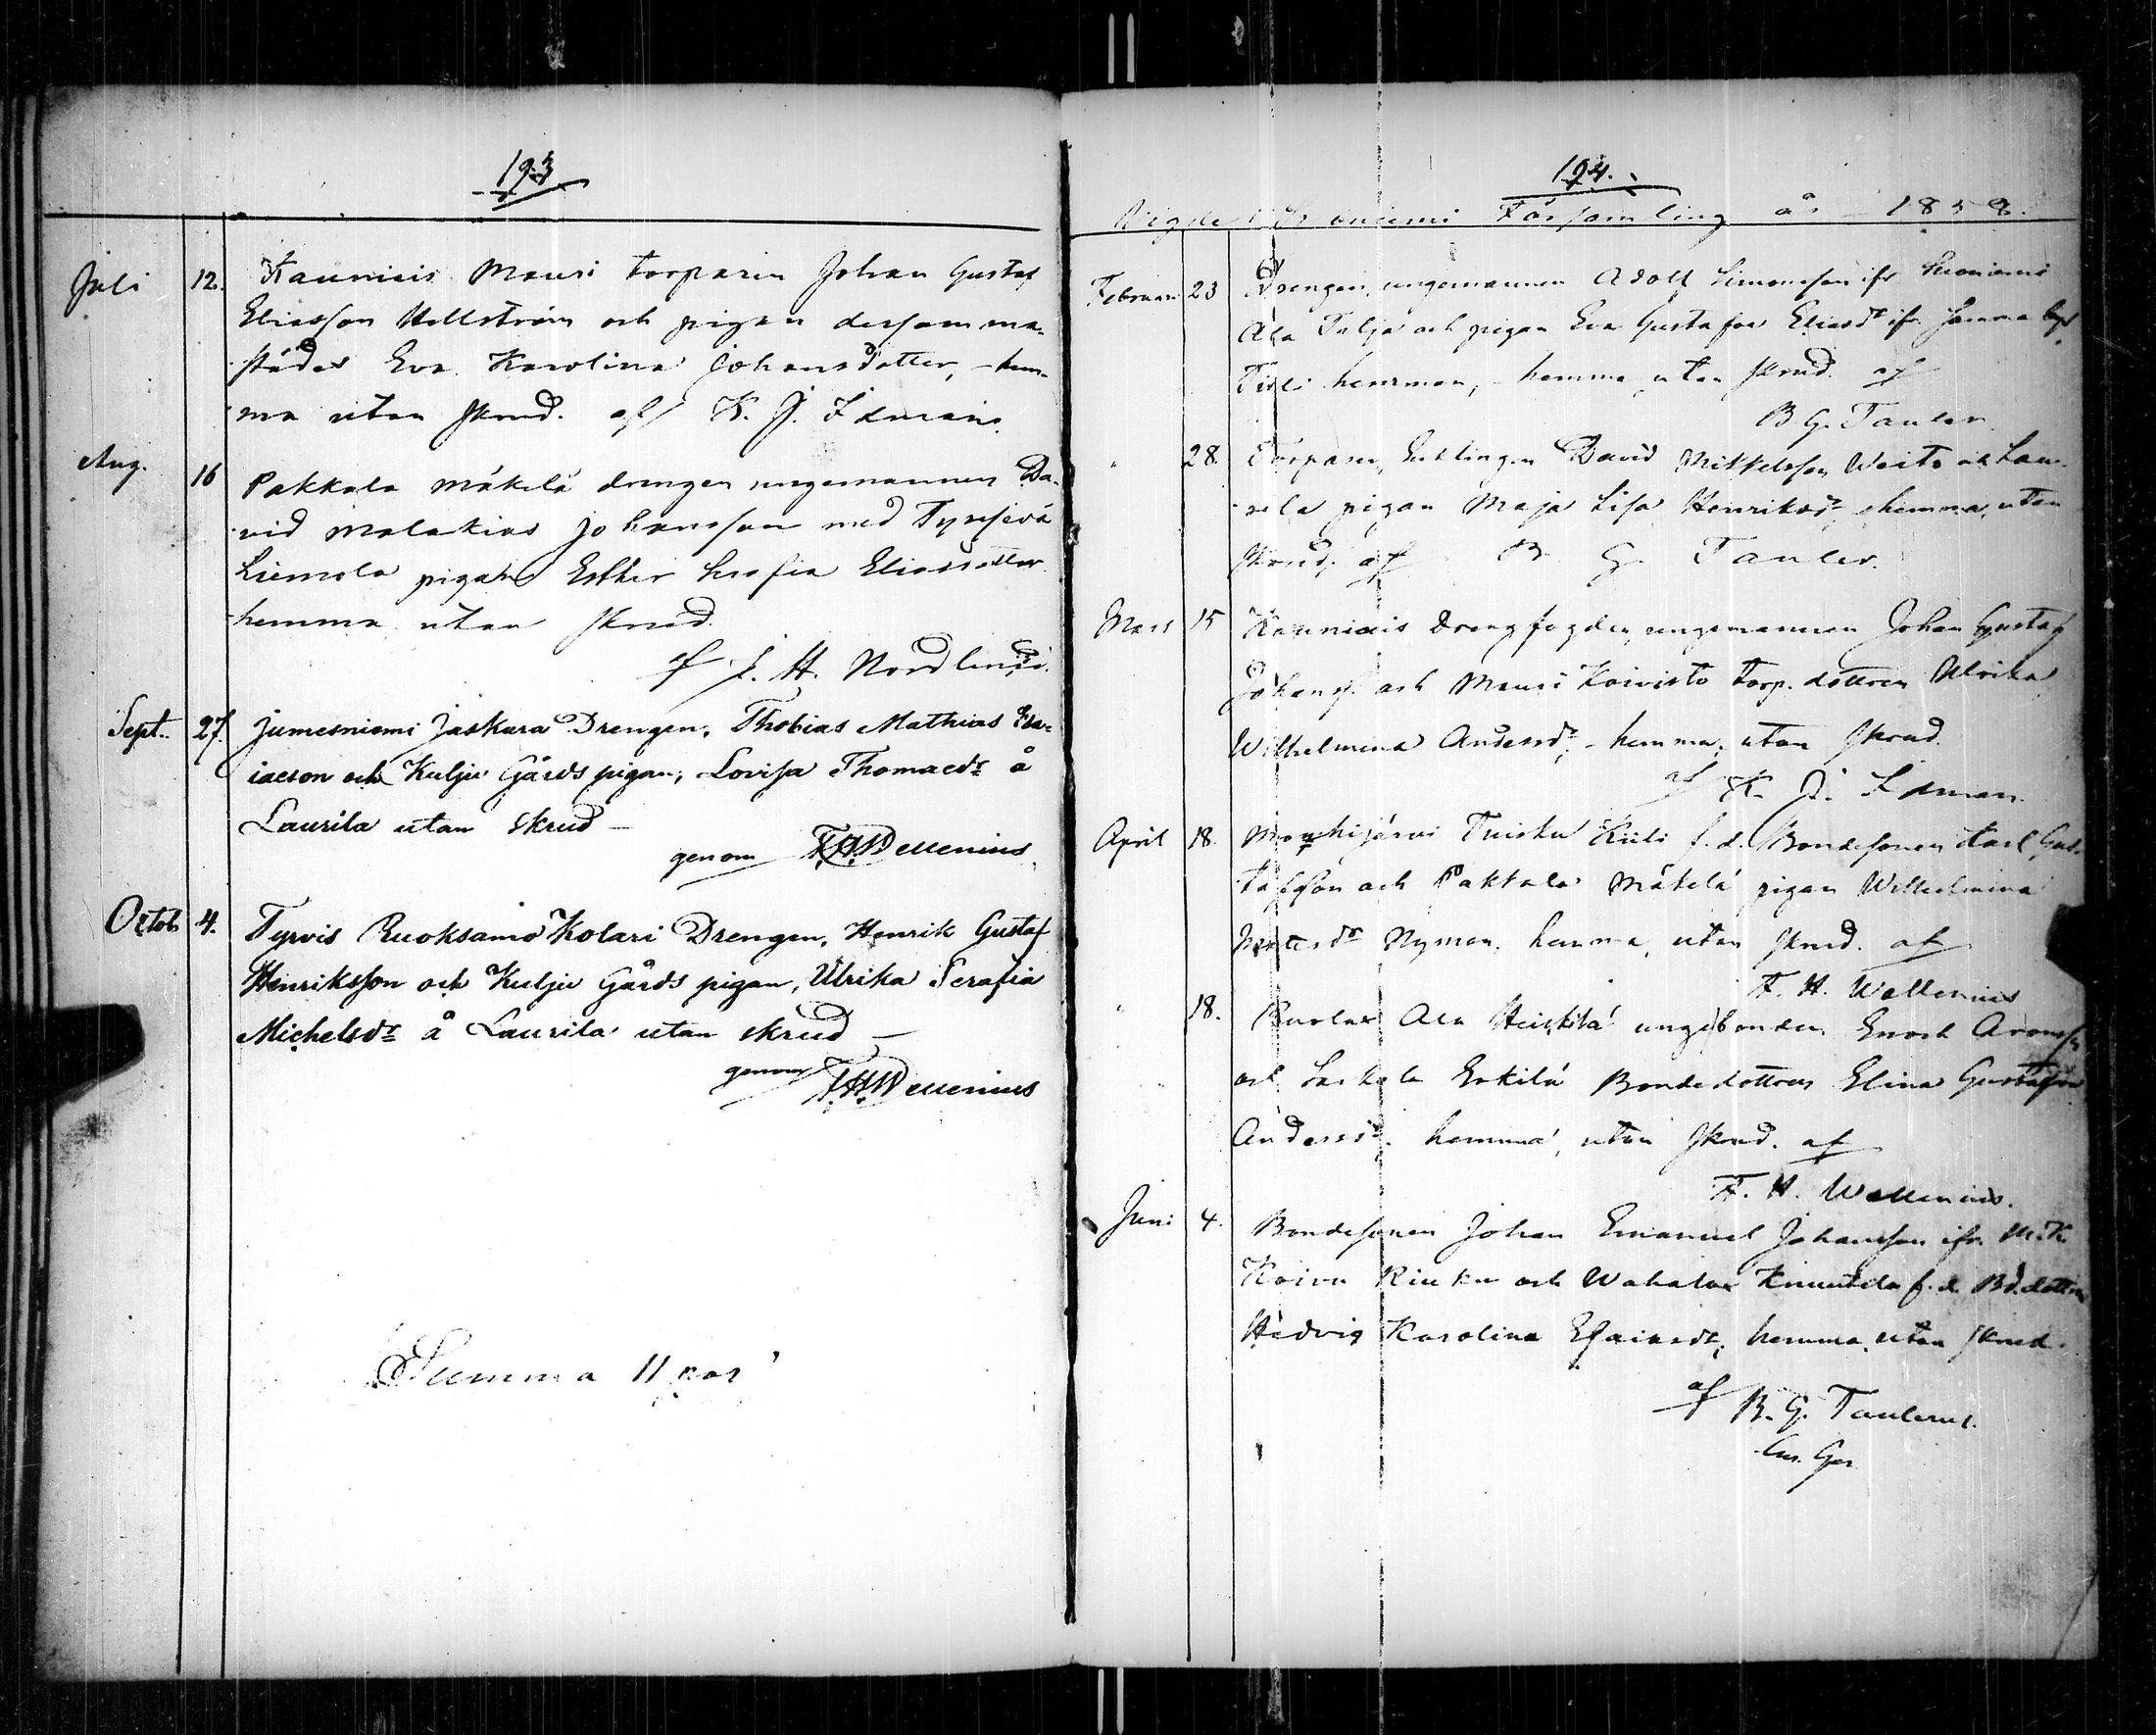 193
Juli 12. Kauniais Mauri torparen Johan Gustaf
Eliasson Hellström och pigan dersamma-
städes Eva Karolina Johansdotter, hem-
ma utan skrud. af K. J. Idman.
Aug. 16 Pakkala Mäkelä drengen ungemannen Da-
vid Malakias Johansson med Tyrisevä
Liemola pigan Esther Serafia Eliaedotter
hemma utan skrud.
af J. H. Nordlund.
Sept. 27. Jumesniemi Jaskara Drengen, Thobias Mathias Esa-
iaeson och Kulju Gårds pigan, Lovisa Thomaedr å
Laurila utan skrud —
genom F. H. Wellenius.
Octob 4. Tyrvis Ruoksamo Kolari Drengen, Henrik Gustaf
Henriksson och Kulju Gårds pigan, Ulrika Serafia
Michelsdr å Laurila utan skrud —
genom F. H. Wellenius
Summa 11 par
194.
Vigde i Suoniemi Församling år 1858.
Februari 23 Drengen, ungemannen Adolf Simonsson ifr Suoniemi
Ala Talja och pigan Eva Gustafva Eliasdr ifr samma by
hemman, hemma utan skrud. af
B. G. Tauler.
" 28. Torparen, Enklingen David Mikkelsson Waito och Lau-
rila pigan Maja Lisa Henriksdr, hemma, utan
skrud. af B. G. Tauler.
Mars 15 Kauniais Drengfogden, ungemannen Johan Gustaf
Johanss. och Mauri Koivisto torp. dottren Ulrika
Wilhelmina Andersdr, hemma, utan skrud.
af K. J. Idman.
April 18. Mouhijärvi Tuisku Kiili f. d. Bondesonen Karl Gus-
tafsson och Pakkala Mäkelä pigan Wilhelmina
Mattsdr Nyman, hemma, utan skrud. af
F. H. Wellenius
" 18. Kuolas Ala Heikkilä ungebonden Enoch Aronss.
och Erkilä Bondedottren Elina Gustafva
Andersdr. hemma, utan skrud. af
F. H. Wellenius.
Juni 4. Bondesonen Johan Emanuel Johansson ifr. M:K.
Koivu och Wahalax Knuutila f. d. Bd.dottren
Hedvig Karolina Esaiaedr, hemma, utan skrud.
af B. G. Taulerus.